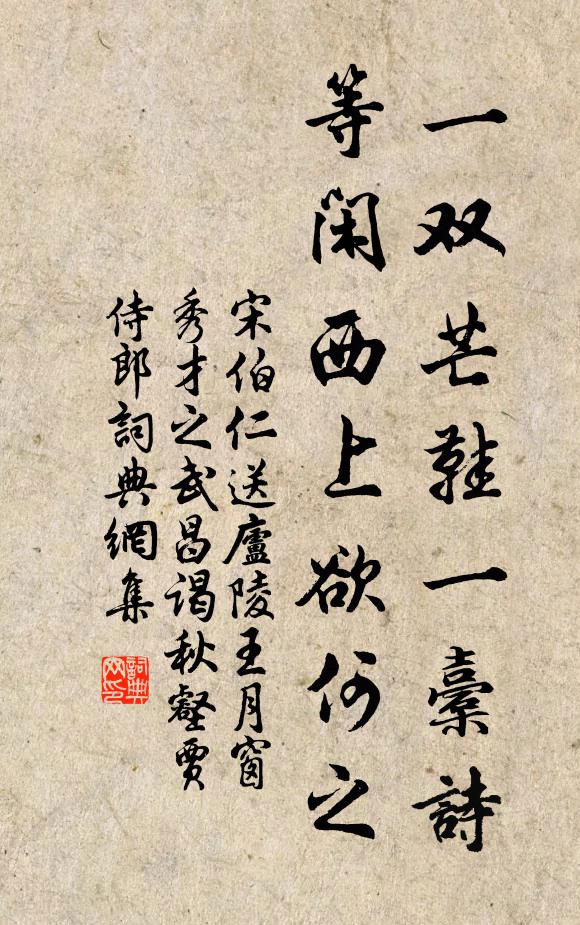 一双芒鞋一橐詩
等闲西上欲何之
宋伯仁送廬陵王月窗
秀才之武昌謁秋壑賈
侍郎詞典網集
詞典
网印